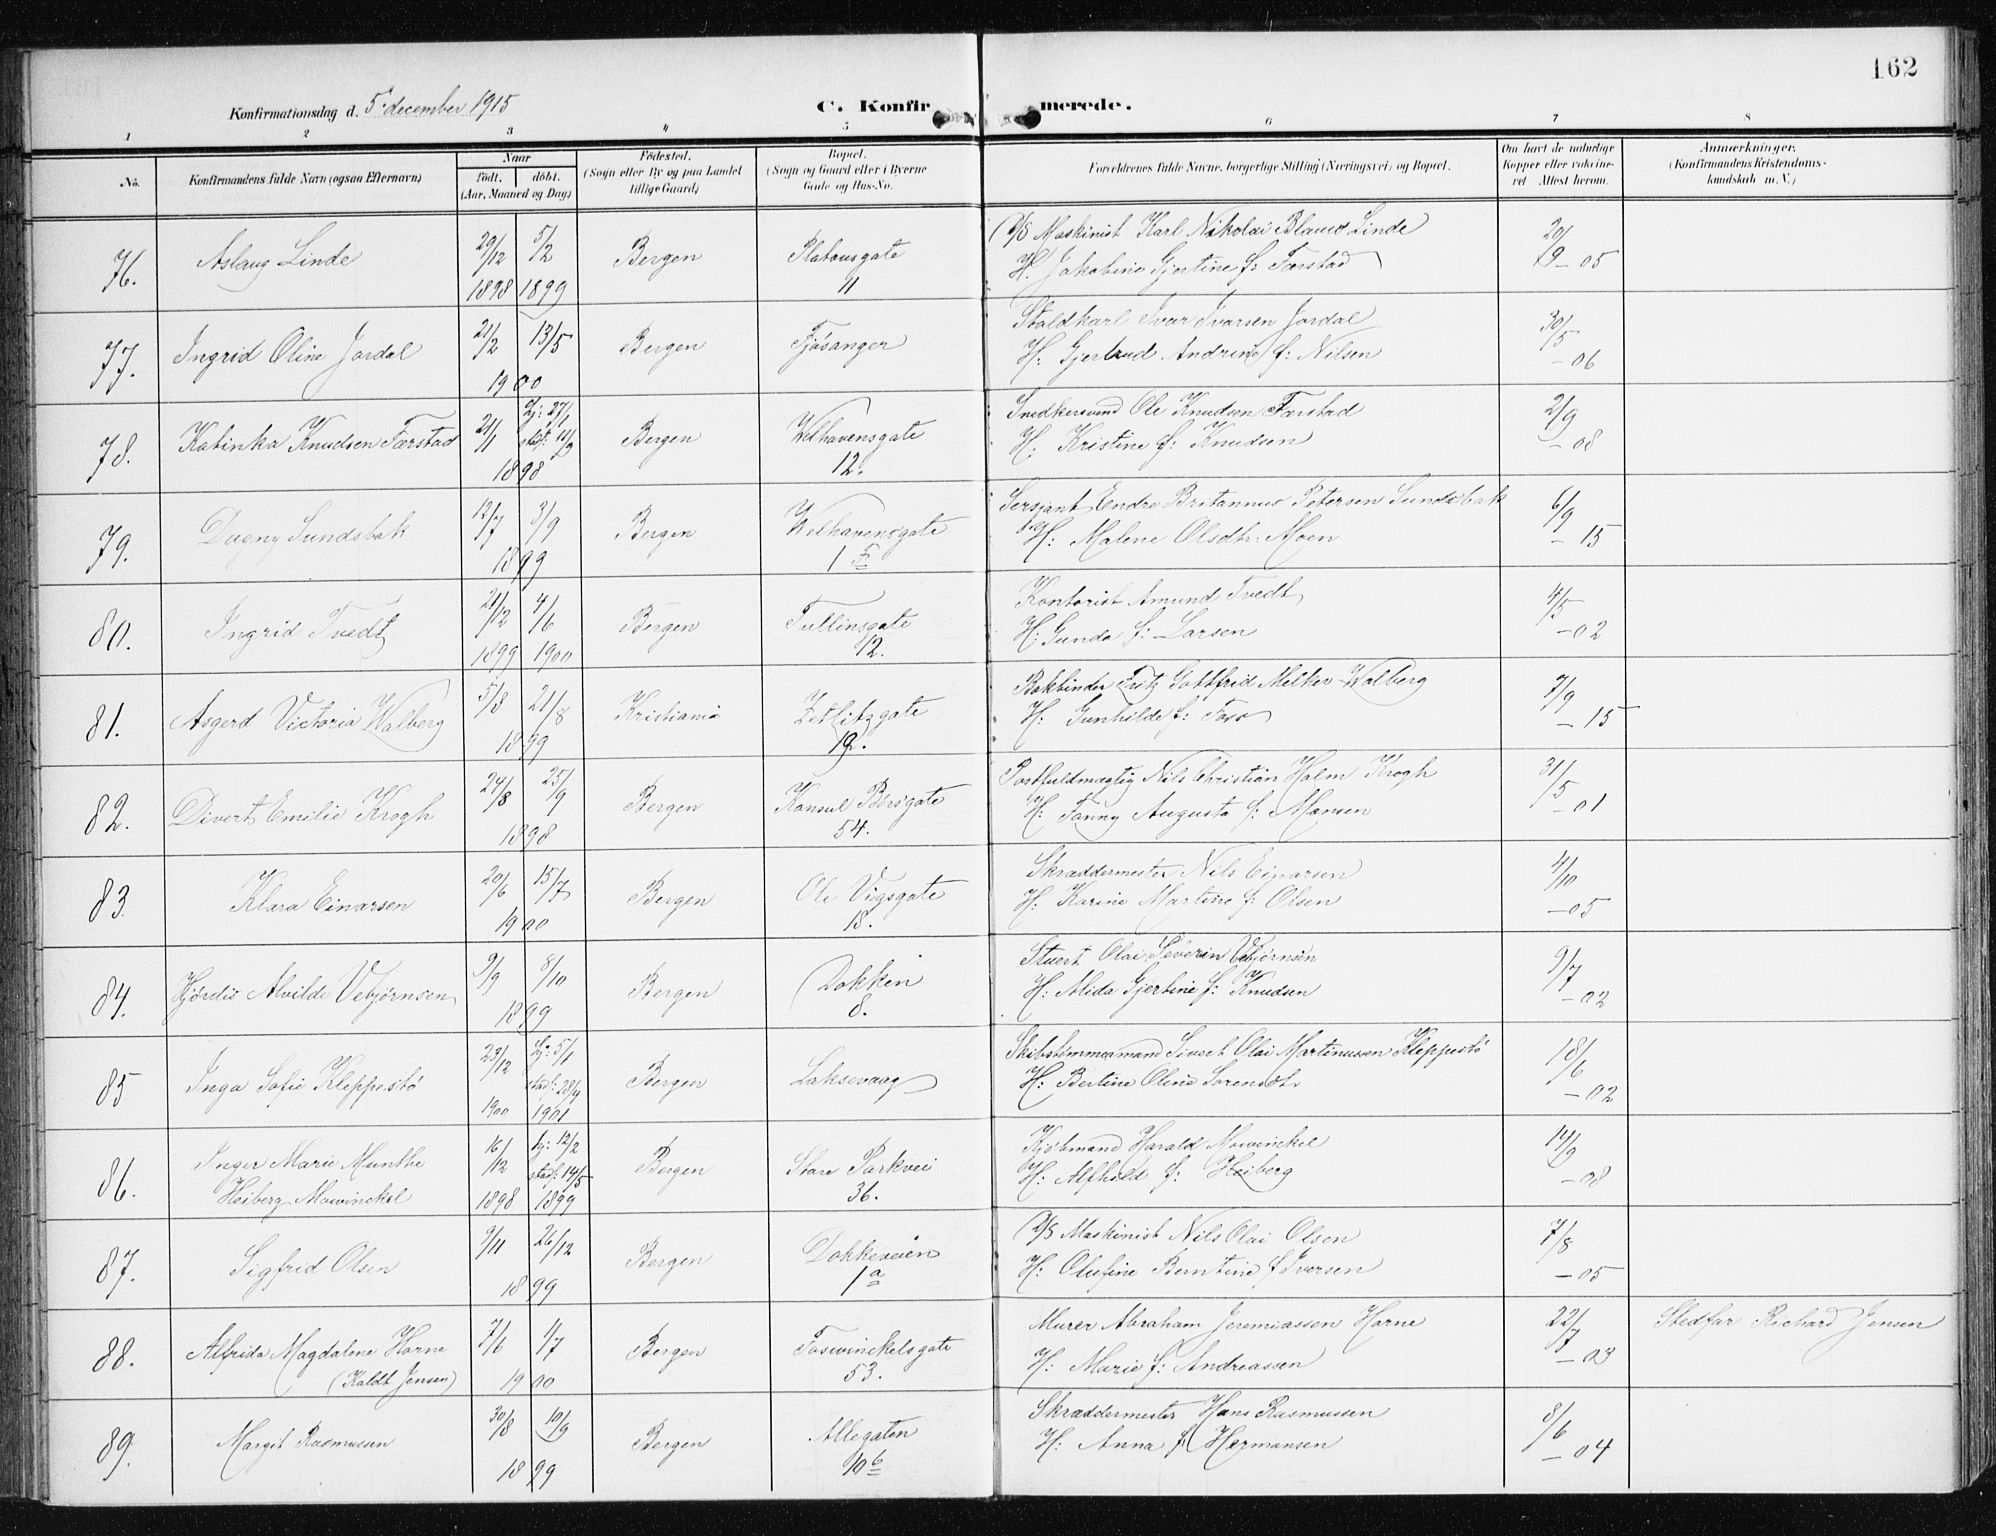 162
Konfirmationsdag d. 5' december 1915
C. Konfirmerede.
1 2 3 4 5 6 7 8
No.
Konfirmandens fulde Navn (ogsaa Efternavn)
Naar
født. døbt.
(Aar, Maaned og Dag)
Fødested.
(Sogn eller By og paa Landet
tillige Gaard)
Bopæl.
(Sogn og Gaard eller i Byerne
Gade og Hus-No.
Forældrenes fulde Navne, borgerlige Stilling (Næringsvei) og Bopæl.
Om havt de naturlige
Kopper eller vaksine-
ret Attest herom.
Anmærkninger.
(Konfirmandens Kristendoms-
kundskab m. V.)
76. Aslaug Linde 29/12 1898 5/2 1899 Bergen Platousgate 11
D/S Maskinist Karl Nikolai Linde
H. Jakobine Gjertine f: Farstad
20/9 -05
77. Ingrid Oline Jordal 21/2 13/5 1900 Bergen Fjøsanger
Staldkarl Ivar Ivarsen Jordal
H: Gjertrud Andrine f: Nilsen
30/5 -06
78. Katinka Knudsen Farstad 21/1 hj: 27/1 stadf: 1898 Bergen Welhavensgate 12.
Snedkersvend Ole Knudsen Farstad
H. Kristine f: Knudsen
2/9 -08
79. Dagny Sundsbak 12/7 3/9 1899 Bergen Welhavensgate 15
Sersjant Endre Britannus Petersen Sundsbak
H: Malene Olsdtr. Moen
6/9 -15
80. Ingrid Tvedt 21/12 1899 4/6 1900 Bergen Tullinsgate 12.
Kontorist Amund Tvedt
H: Gunda f: Larsen
4/5 -02
81. Asgerd Victoria Walberg 5/8 21/8 1899 Kristiania Zetlitzgate 19.
Bokbinder Fritz Gottfrid Melker Walberg
H: Gunhilde f: Foss
7/9 -15
82. Divert Emilie Krogh 24/8 25/9 1898 Bergen Konsul Børsgate 54.
Postfuldmægtig Nils Christian Holm Krogh
H: Fanny Augusta f: Monsen
31/5 -01
83. Klara Einarsen 20/6 15/7 1900 Bergen Ole Vigsgate 18.
Skræddermester Nils Einarsen
H: Karine Martine f: Olsen
4/10 -05
84. Hjørdis Alvilde Vebjørnsen 9/9 8/10 1899 Bergen Dokken 8.
Stuert Olai Severin Vebjørnsen
H: Alida Gjertine f: Knudsen
9/7 -02
85 Inga Sofie Kleppestø 23/12 1900 hj: 5/1 stadf: 28/4 1901 Bergen Laksevaag
Skibstømmermand Sivert Olai Martinussen Kleppestø
H: Bertine Oline Sørensdtr
18/6 -02
86. Inger Marie Munthe
Heiberg Mowinckel 16/12 1898 hj: 12/2 stadf: 14/5 1899 Bergen Store Parkvei 36.
Kjøbmand Harald Mowinckel
H: Alfhild f: Heiberg
14/9 -08
87. Sigfrid Olsen 9/11 26/12 1899 Bergen Dokkeveien 1a
D/S Maskinist Nils Olai Olsen
H: Olufine Berntine f Iversen
7/8 -05
88. Alfrida Magdalene Horne
(Kaldt Jensen) 7/6 1/7 1900 Bergen Foswinckelsgate 53.
Murer Abraham Jeremiassen Horne
H: Marie f: Andreassen
22/7 -03
Stedfar Richard Jensen
89. Margit Rasmussen 30/8 10/9 1899 Bergen Allegaten 10b
Skræddermester Hans Rasmussen
H: Anna f: Hermansen
8/6 -04